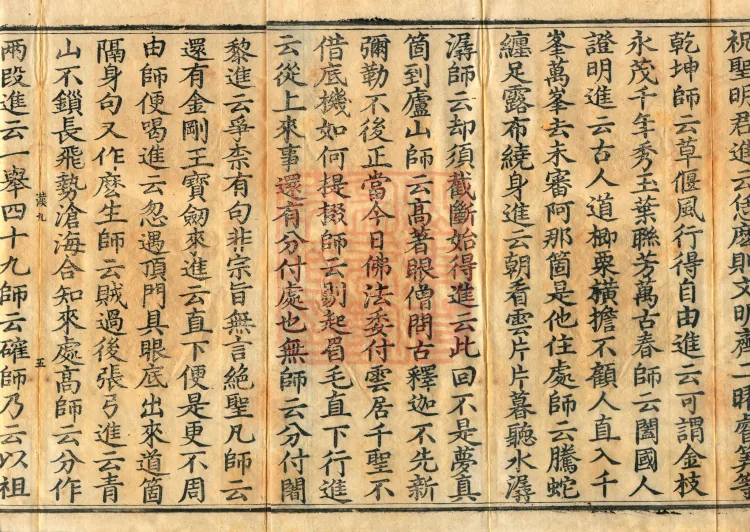 祝聖明君進云恁麼則文明齊二
乾坤師云草偃風行得自由進云可謂金枝
永茂千年秀玉葉聯芳萬古春師云闔國人
證明進云古人道楖栗橫擔不顧人直入千
峯萬峯去未審阿那箇是他住處師云騰蛇
纏足露布繞身進云朝看雲片片暮聽水潺
潺師云却須截斷始得進云此回不是夢真
箇到廬山師云高著眼僧問古釋迦不先新
彌勒不後正當今日佛法委付雲居千聖不
借底機如何提掇師云剔起眉毛直下行進
云從上來事還有分付處也無師云分付闍
黎進云爭柰有句非宗旨無言絕聖凡師云
還有金剛王寶劒來進云直下便是更不周
由師便喝進云忽遇頂門具眼底出來道箇
隔身句又作麼生師云賊過後張弓進云青
山不鎖長飛勢滄海合知來處高師云分作
叢九
五
兩段進云一舉四十九師云確師乃云以祖